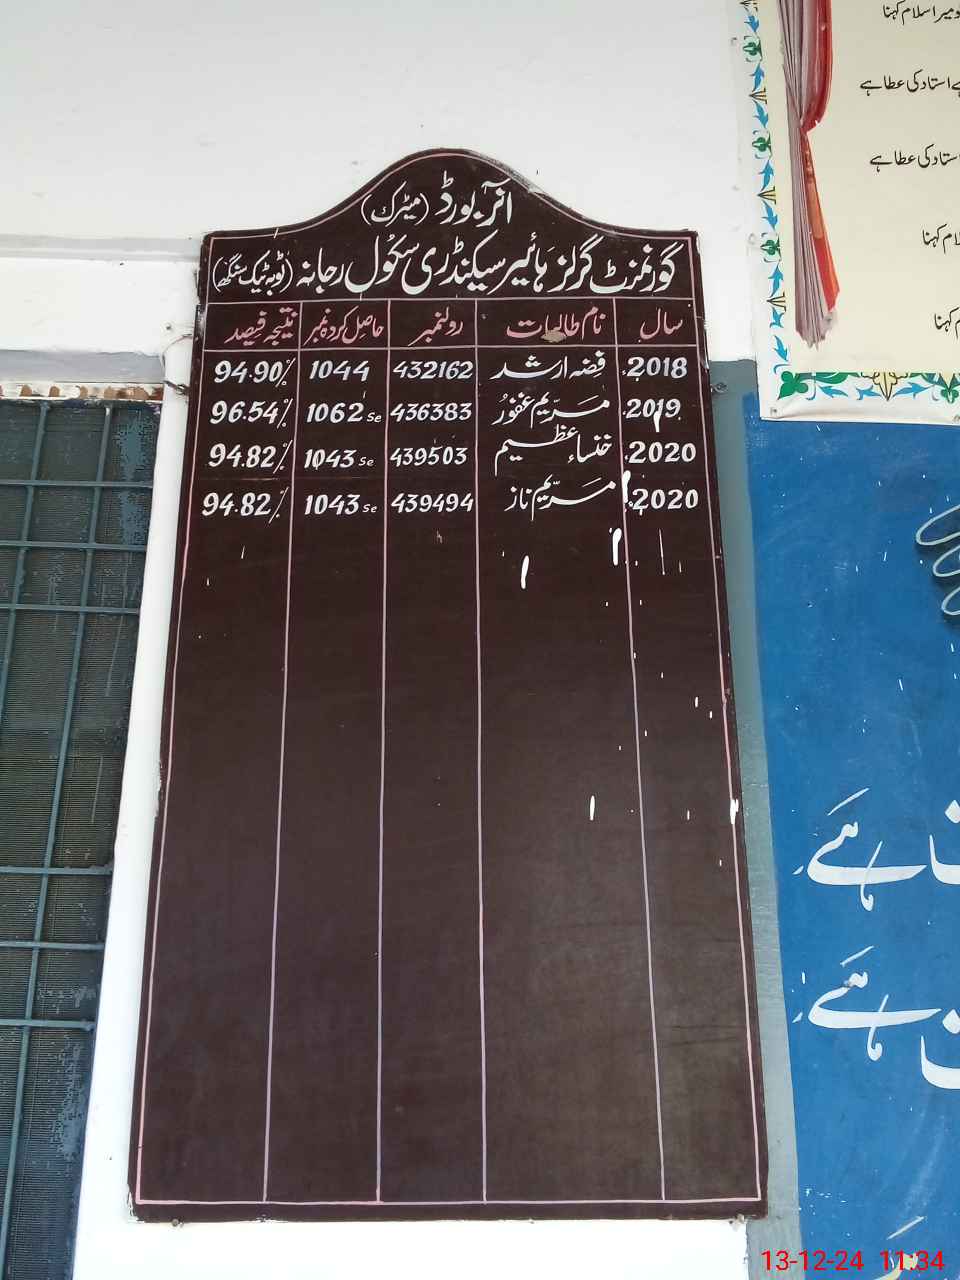 آنر بورڈ (میٹرک)
گورنمنٹ گرلز ہائیر سیکنڈری سکول رجانہ (ٹوبہ ٹیک سنگھ)
سال نام طالبات رولنمبر حاصل کردہ نمبر نتیجہ فیصد
2018 فضہ ارشد 432162 1044 94.90%
2019 مریم غفور 436383 1062 Se 96.54%
2020 خنساء عظیم 439503 1043 Se 94.82%
2020 مریم ناز 439494 1043 Se 94.82%
میرا سلام کہنا
ہے استاد کی عطا ہے
استاد کی عطا ہے
کہنا
کہنا
ہے
ہے
13-12-24 11:34